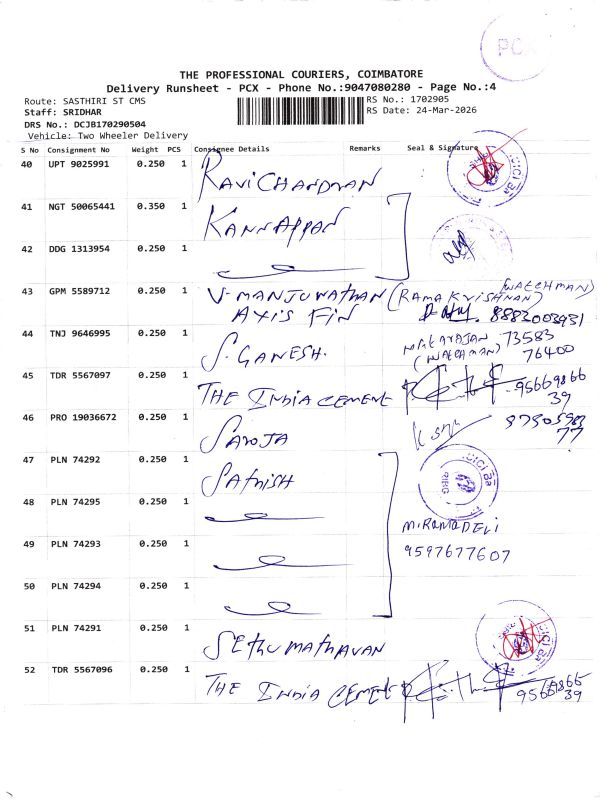 PCX
THE PROFESSIONAL COURIERS, COIMBATORE
Delivery Runsheet - PCX - Phone No.:9047080280 - Page No.:4
Route: SASTHIRI ST CMS
RS No.: 1702905
Staff: SRIDHAR
RS Date: 24-Mar-2026
DRS No.: DCJB170290504
Vehicle: Two Wheeler Delivery
S No Consignment No Weight PCS Consignee Details Remarks Seal & Signature
40 UPT 9025991 0.250 1 RAVICHANDRAN
41 NGT 50065441 0.350 1 KANNAPPAN
42 DDG 1313954 0.250 1
43 GPM 5589712 0.250 1 V-MANJUNATHAN (RAMAKRISHNAN) (WATCHMAN)
AXIS FIN 8883003931
44 TNJ 9646995 0.250 1 S. GANESH. NATARAJAN 73583
(WATCHMAN) 76400
45 TDR 5567097 0.250 1 THE INDIA CEMENT 95669866
39
46 PRO 19036672 0.250 1 SAROJA
77
47 PLN 74292 0.250 1 SATHISH
ICICI Ba
RIBG
48 PLN 74295 0.250 1
M.RAMADEVI
49 PLN 74293 0.250 1 9597677607
50 PLN 74294 0.250 1
51 PLN 74291 0.250 1 SETHUMATHAVAN
52 TDR 5567096 0.250 1 THE INDIA CEMENT 95669866
39